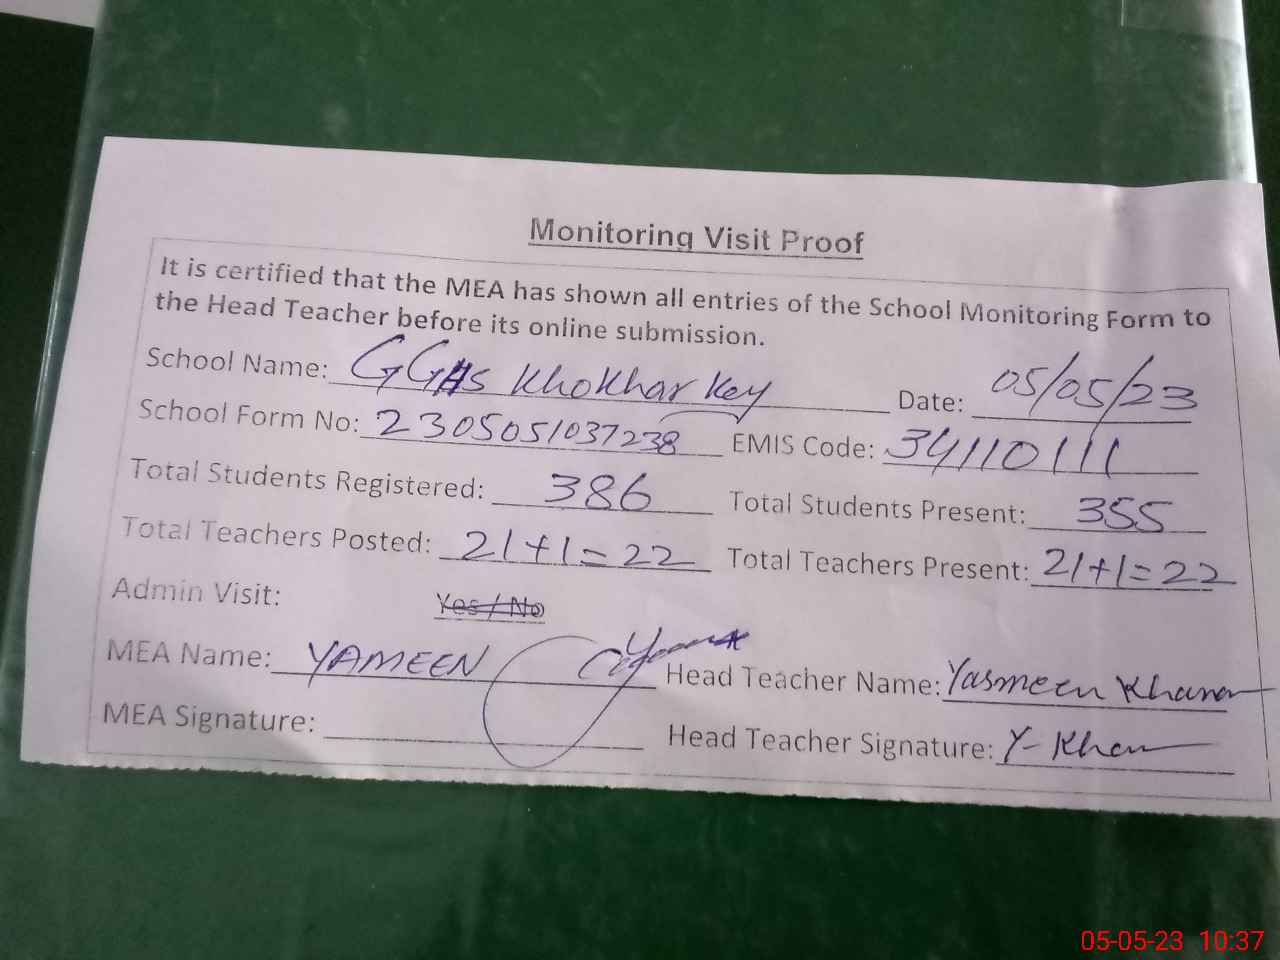 Monitoring Visit Proof
It is certified that the MEA has shown all entries of the School Monitoring Form to
the Head Teacher before its online submission.
School Name: GGHS Khokhar Key Date: 05/05/23
School Form No: 2305051037238 EMIS Code: 34110111
Total Students Registered: 386 Total Students Present: 355
Total Teachers Posted: 21+1=22 Total Teachers Present: 21+1=22
Admin Visit: Yes / No
MEA Name: YAMEEN Head Teacher Name: Yasmeen Khanam
MEA Signature: Head Teacher Signature: Y-Khan
05-05-23 10:37